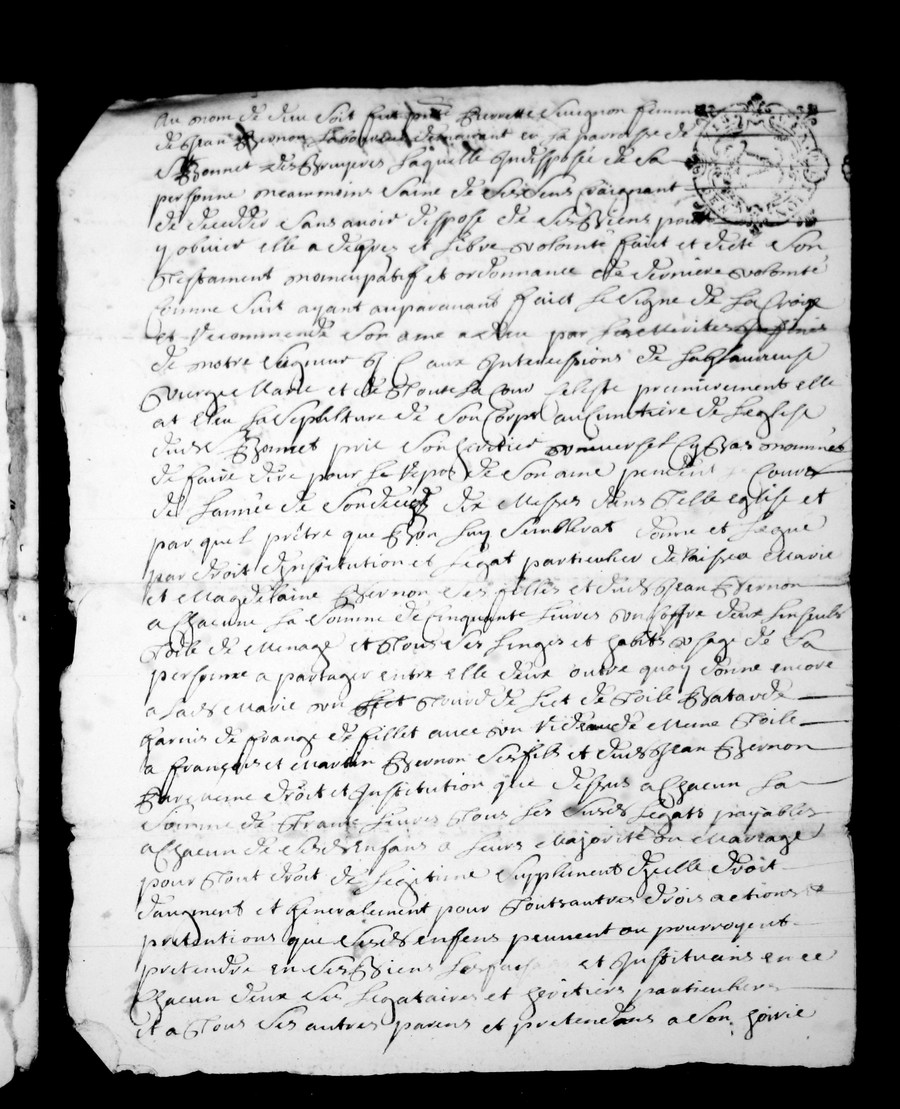 Au nom de dieu soit fait pnte Pierrette femme
de Jean Bernon Laboureur demeurant en la parroisse de
St Bonnet des Bruyeres Laquelle Indisposée de sa
personne neammoins saine de ses sens Craignant
de deceder sans avoir dispose de ses Biens pour
y obvier elle a de gres et libre volonté faict et dicté son
Testament noncupatif et ordonnance de derniere volonté
Comme suit ayant auparavant faict le signe de la Croix
et recommende son ame a dieu par les merites
de notre seigneur J C aux Intercessions de la glorieuse
vierge Marie et de Toute la Cour Celeste premierement elle
at eleu la sepulture de son Corps au Cimetiere de leglise
dud St Bonnet prie son heritier universel Cy bas nommé
de faire dire pour le repos de son ame pendent le Cours
de lannée de son deces dix Messes dans Telle eglise et
par quel prêtre que Bon luy semblerat donne et Legue
par droit dinstitution et Legat particulier delaisse a Marie
et Magdelaine Bernon ses filles et dud Jean Bernon
a Chacune la somme de Cinquante livres un Coffre deux linseuls
Toile de Menage et Tous ses linges et habits usage de sa
personne a partager entre elle deux outre quoy donne encore
a lad Marie un Tour de Lict de Toile Batarde
garnis de frange de fillet avec un rideau de Meme Toile
a François et Martin Bernon ses fils et dud Jean Bernon
Par meme droit et Institution que dessus a Chacun la
somme de Trante livres Tous les susds Legats payables
a Chacun de sesds Enfans a leurs Majorité ou Mariage
pour Tout droit de Legitime supplement dicelle droit
daugment et generalement pour Touts autres droits actions
pretentions que sesds enfens peuvent ou pourroyent
pretendre en ses Biens et Instituans en ce
Chacun deux ses Legataires et heritiers particuliers
et a Tous ses autres parens et pretendans a son hoirie